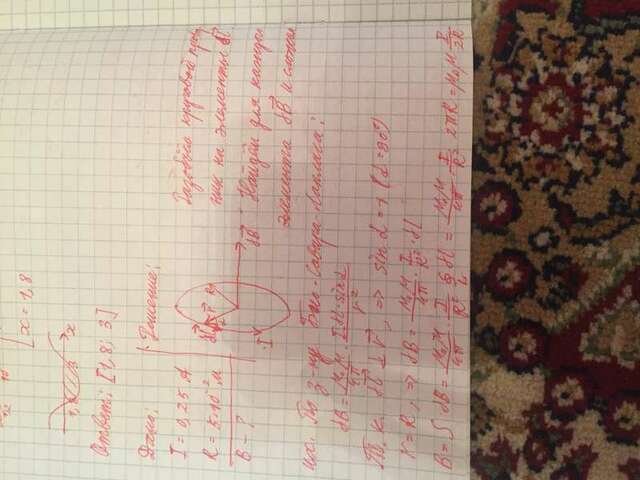 x = 1,8
x
Ответ: [1,8; 3]
Дано: Решение:
I = 0,25 A Разобьём круговой
R = 5·10⁻² м на элементы dl
B - ? Найдём для каждого
элемента dB и сложим
их. По з-ну Био-Савара-Лапласа:
dB = μ₀μ/4π · I·dl·sin α/r²
Т.к. dl ⊥ r, => sin α = 1 (α = 90°)
r = R, => dB = μ₀μ/4π · I/R² · dl
B = ∫ dB = μ₀μ/4π · I/R² ∮ dl = μ₀μ/4π · I/R² · 2πR = μ₀μ I/2R